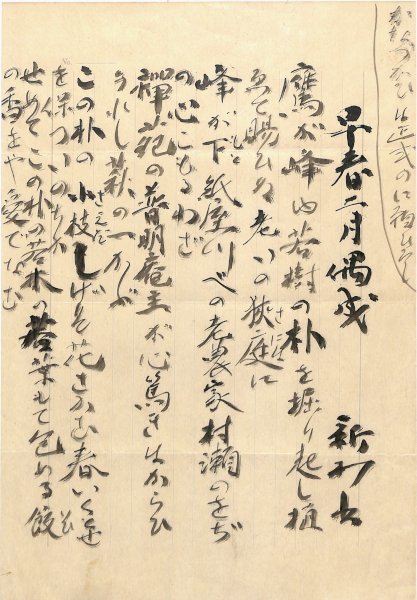 早春二月偶成　新村出
鷹が峰ゆ若樹の朴を掘り起し植
ゑて賜ひぬ老いの狭庭に
峰が下紙屋川べの老農家村瀬のをぢ
の心こもるわざ
禅苑の普明庵主が心篤きはからひ
うれし萩の一かぶ
この朴の小枝しげり花さかむ春いく
を保ついのちか
せめてこの朴の若木の若葉もて包める餃
の香をや愛でなむ